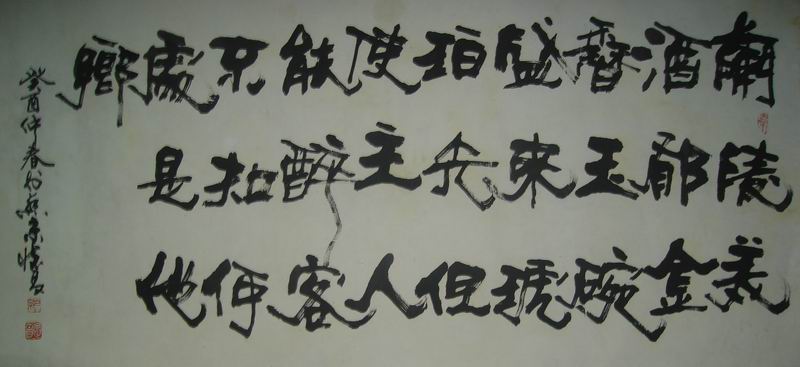 蘭陵美
酒郁金
香玉碗
盛來琥
珀光但
使主人
能醉客
不知何
處是他
鄉
癸酉仲春